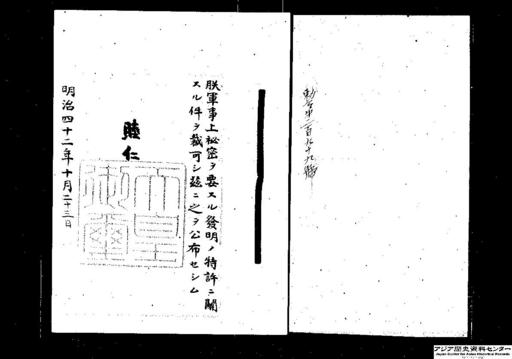 勅令第二百九十九號
朕軍事上祕密ヲ要スル發明ノ特許ニ關
スル件ヲ裁可シ玆ニ之ヲ公布セシム
睦仁
天皇
御璽
明治四十二年十月二十三日
アジア歴史資料センター
Japan Center for Asian Historical Records